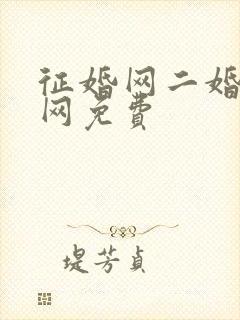 征婚网二婚
网免费
堤芳貞